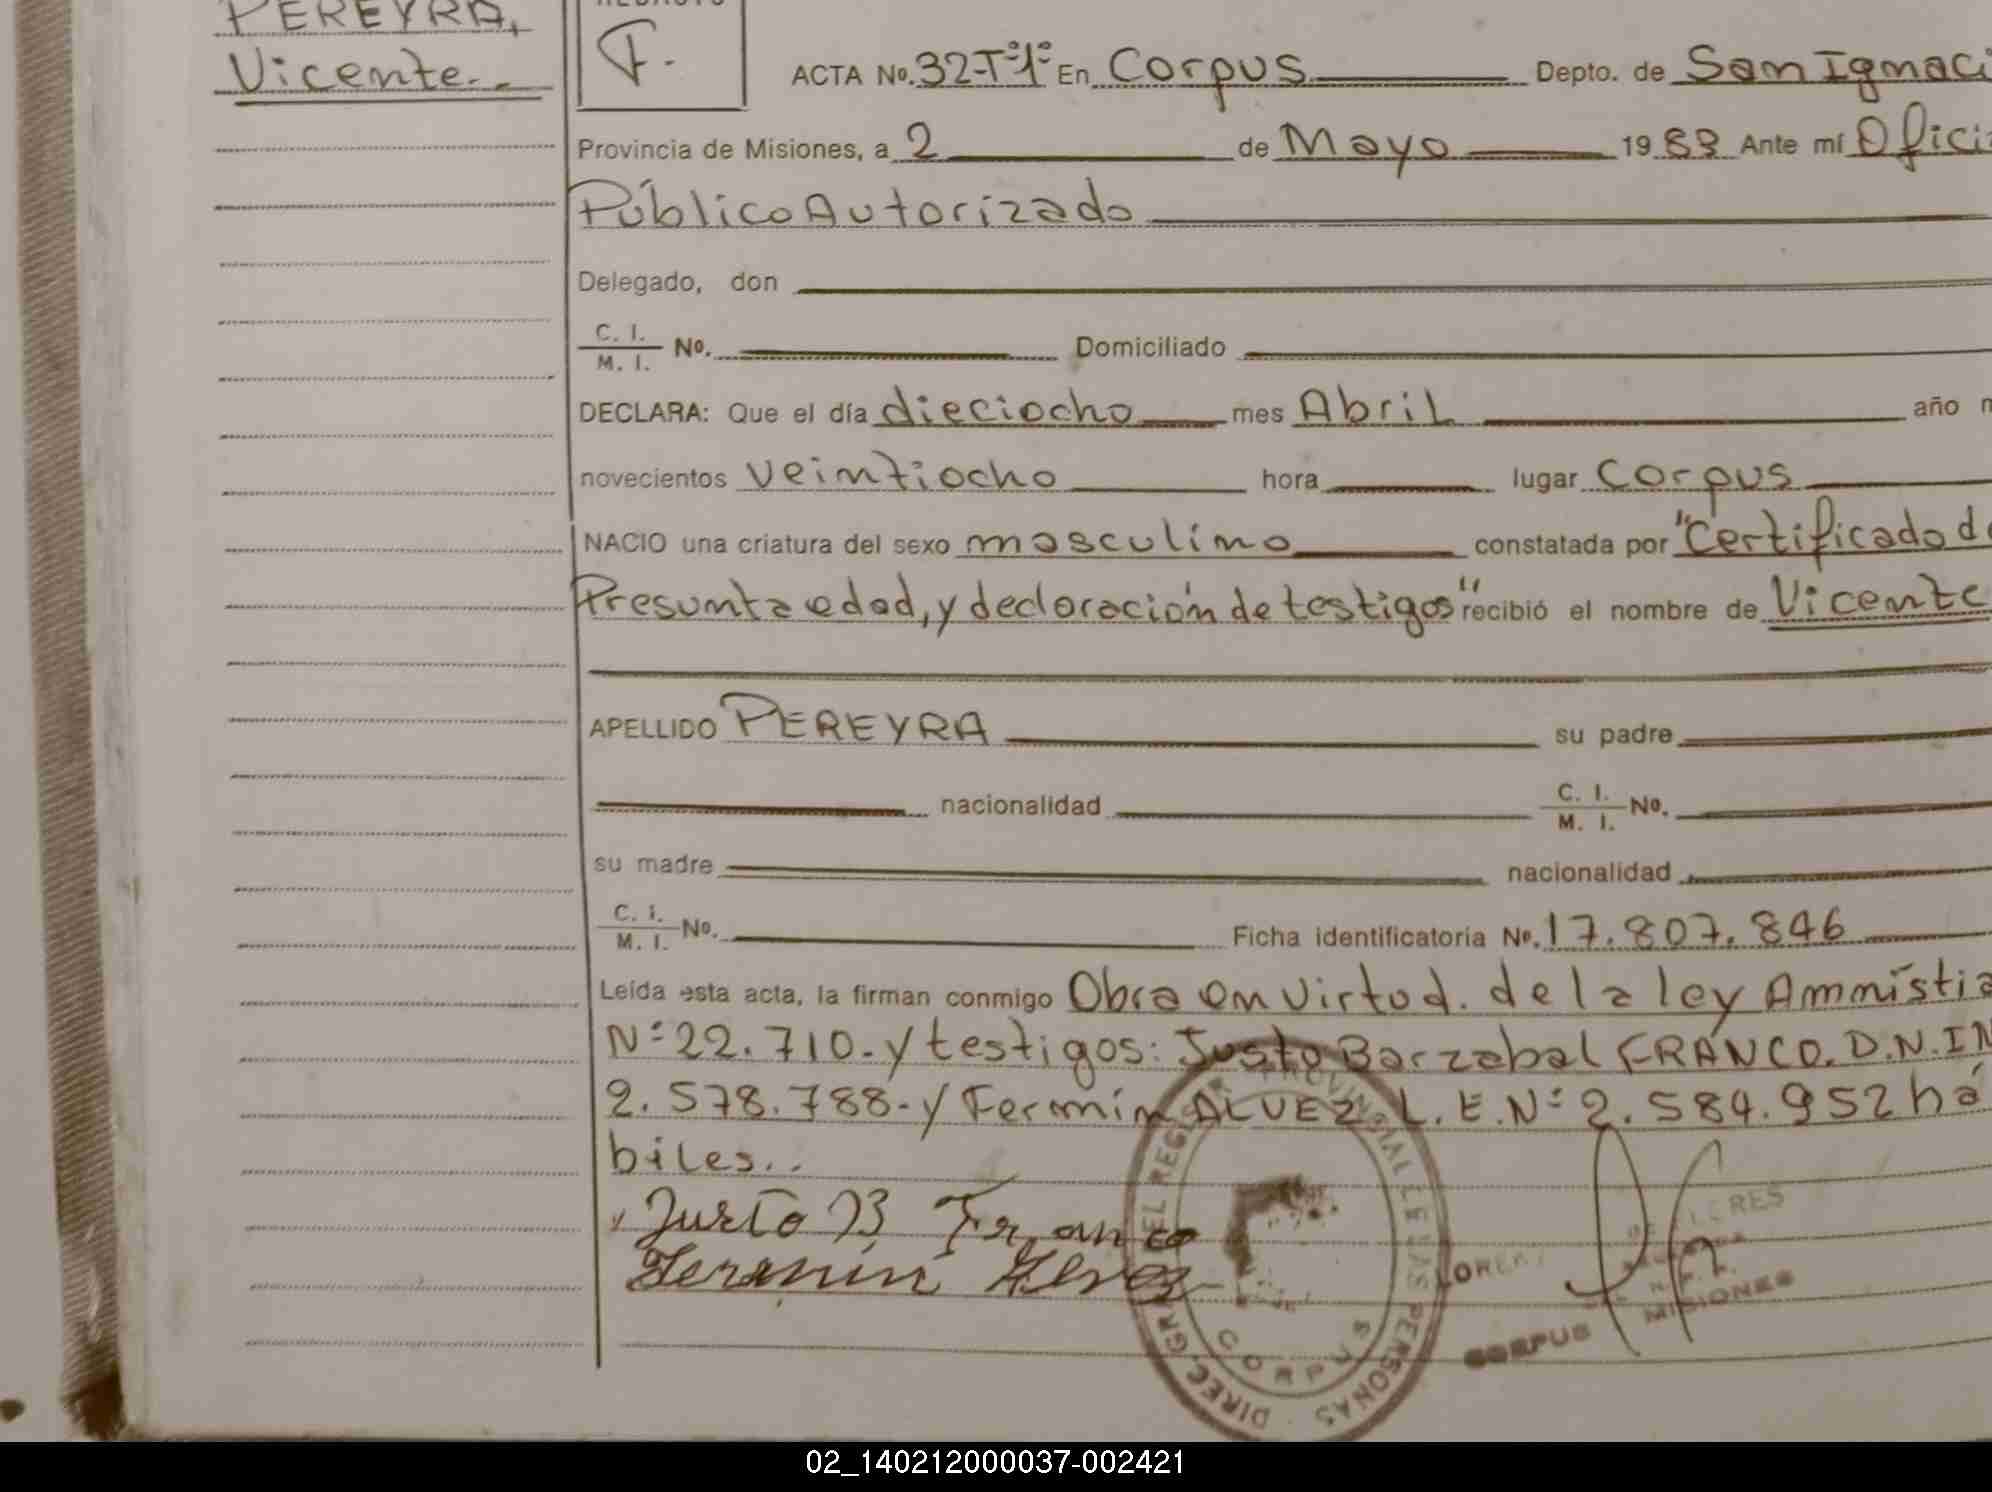 PEREYRA,
Vicente.-
F.
ACTA No. 32-T°1° En Corpus Depto. de San Ignaci
Provincia de Misiones, a 2 de Mayo 1983 Ante mí Ofici
Público Autorizado
Delegado, don
C. I.
M. I. No. Domiciliado
DECLARA: Que el día dieciocho mes Abril año
novecientos veintiocho hora lugar Corpus
NACIO una criatura del sexo masculino constatada por "Certificado d
Presunta edad, y declaración de testigos" recibió el nombre de Vicente
APELLIDO PEREYRA su padre
nacionalidad C. I.
M. I. No.
su madre nacionalidad
C. I.
M. I. No. Ficha identificatoria No. 17.807.846
Leída esta acta, la firman conmigo Obra en virtud. de la ley Amnistia
N° 22.710.- y testigos: Justo Barzabal FRANCO. D.N.I N
2.578.788- y Fermín ALVEZ L.E.N° 2.584.952 há
biles..
Justo B Franco
Fermín Alvez
DIREC. GRAL DEL REGISTR PROVINCIAL DE LAS PERSONAS
CORPUS
CORPUS MISIONES
02_140212000037-002421